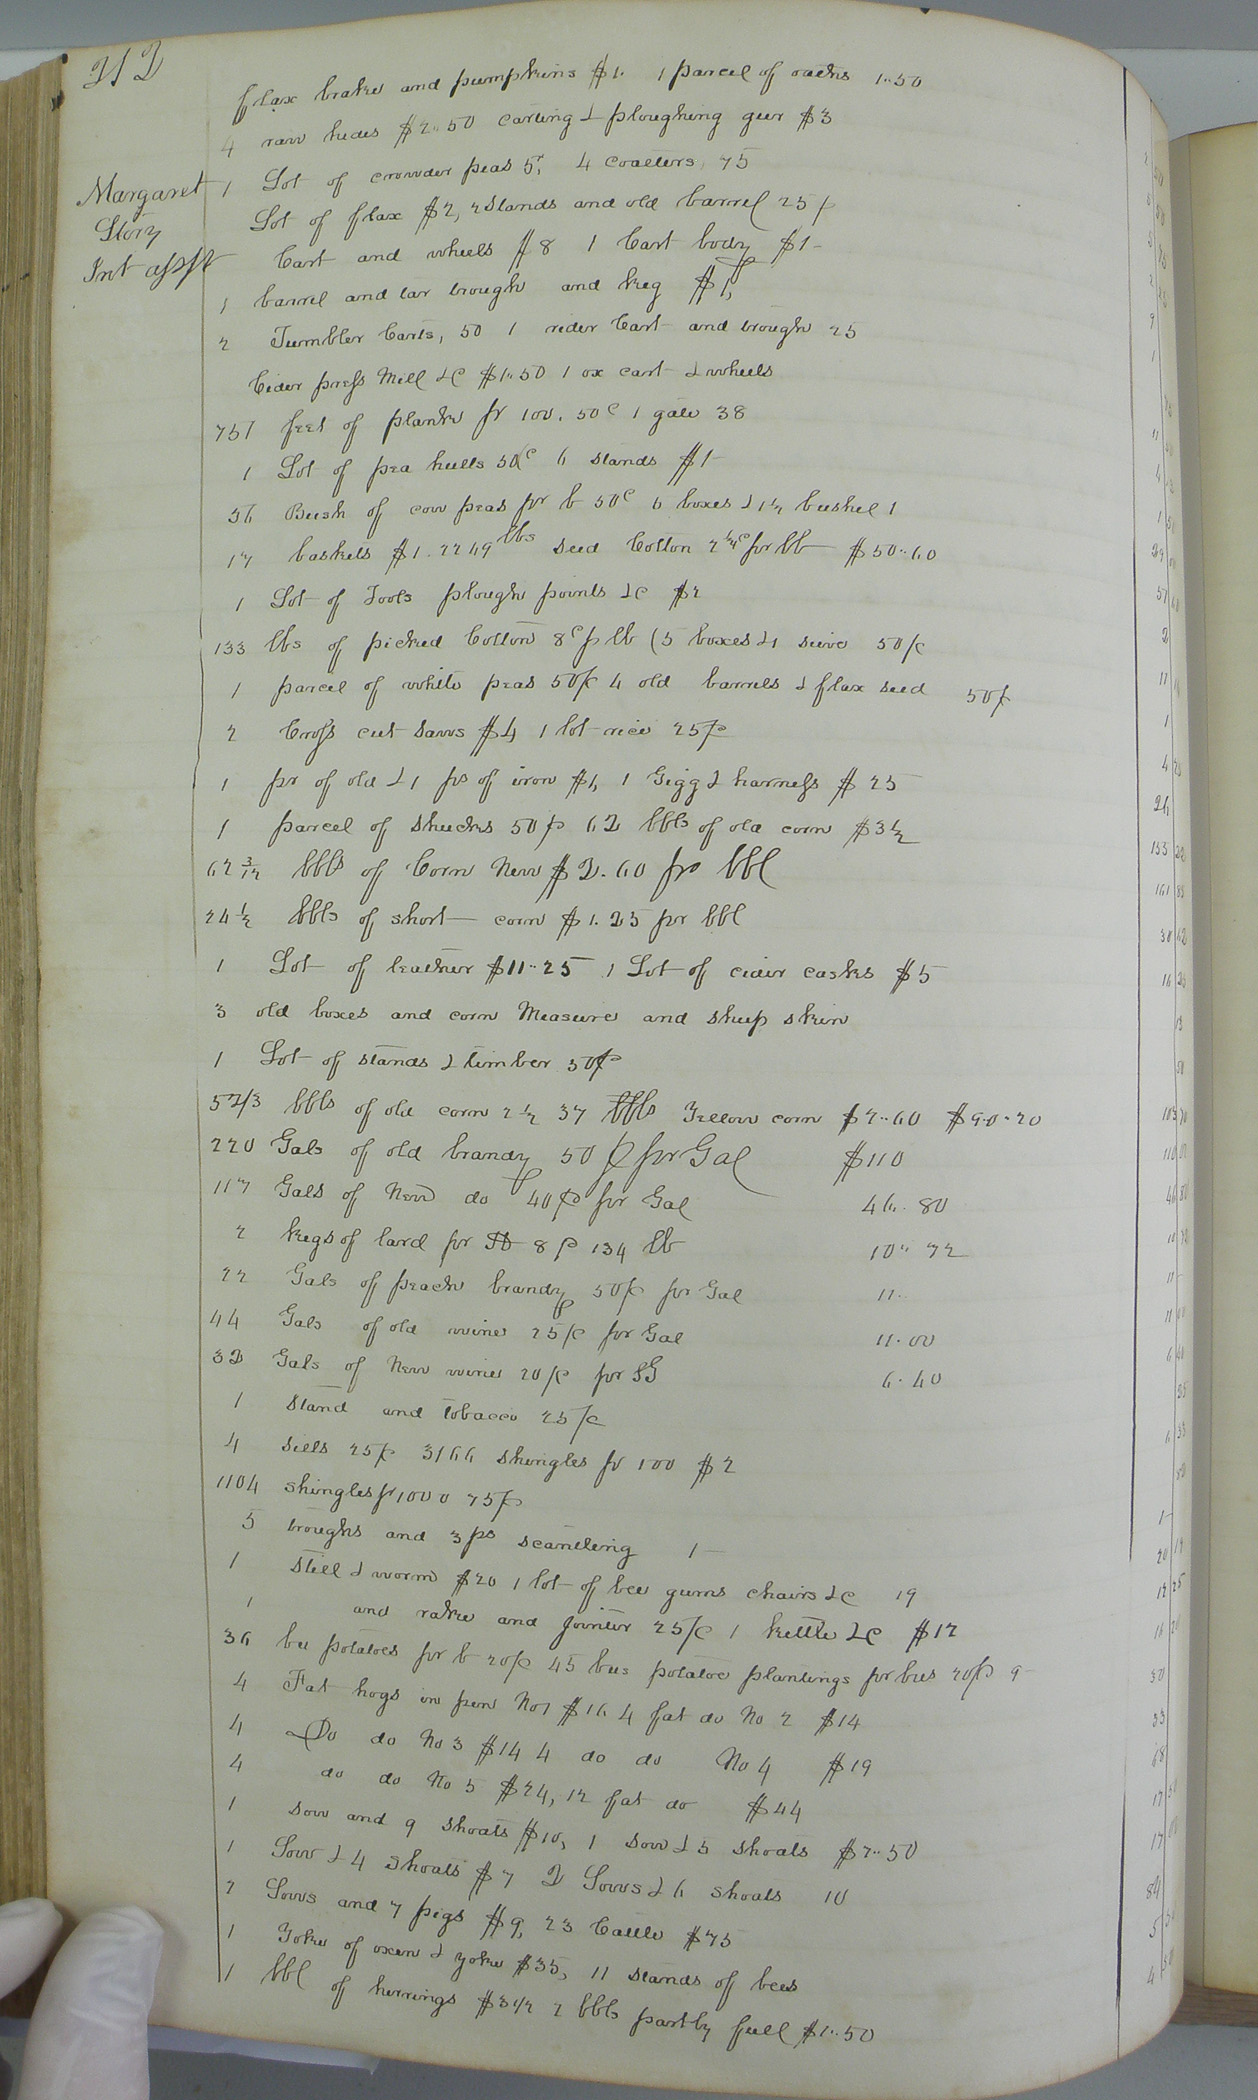 212
flax brake and pumpkins $1. 1 parcel of racks 1..50
4 raw hides $2..50 carting & ploughing geer $3
Margaret
Story
Int appt
1 Lot of crowder peas 5, 4 coalters, 75
Lot of flax $2, 2 Stands and old barrel 25/
Cart and wheels $8 1 Cart body $1-
1 barrel and tar trough and keg $1,
2 Tumbler Carts, 50 1 rider Cart and trough 25
Cider press Mill &c $1..50 1 ox cart & wheels
757 feet of planke pr 100. 50c 1 gate 38
1 Lot of pea hulls 50c 6 stands $1-
56 Bush of cow peas pr b 50c 6 boxes & 1½ bushel 1
17 baskets $1. 2249 lbs seed Cotton 2¼c pr lb $50..60
1 Lot of Tools plough points &c $2
133 lbs of picked Cotton 8c p lb (5 boxes & 1 seive 50/c
1 parcel of white peas 50/c 4 old barrels & flax seed 50/
2 Cross cut saws $4, 1 lot rice 25/c
1 pr of old & 1 ps of iron $1, 1 Gigg & harness $25
1 parcel of shucks 50/c 62 bbls of old corn $3½
62 3/12 bbls of Corn New $2.60 pr bbl
24½ bbls of short corn $1.25 pr bbl
1 Lot of leather $11..25 1 Lot of cider casks $5
3 old boxes and corn Measure and sheep skin
1 Lot of stands & timber 50/c
52/3 bbls of old corn 2½ 37 bbls Yellow corn $2..60 $90.20
220 Gals of old brandy 50/c pr Gal $110
117 Gals of New do 40/c pr Gal 46.80
2 kegs of lard pr lb 8/c 134 lb 10..72
22 Gals of peach brandy 50/c pr Gal 11.
44 Gals of old wine 25/c pr Gal 11.00
32 Gals of New wine 20/c pr G 6.40
1 Stand and tobacco 25/c
4 sills 25/c 3166 shingles pr 100 $2
1104 shingles pr 1000 75/c
5 troughs and 3 ps scantling 1-
1 still & worm $20 1 lot of bee gums chairs &c 19
1 and rake and jointer 25/c 1 kettle &c $12
36 bu potatoes pr b 20/c 45 bus potatoe plantings pr bus 20/c 9-
4 Fat hogs in pen No 1 $16 4 fat do No 2 $14
4 Do do No 3 $14 4 do do No 4 $19
4 do do No 5 $24, 12 fat do $44
1 sow and 9 shoats $10, 1 sow & 5 shoats $7..50
1 Sow & 4 shoats $7 2 Sows & 6 shoats 10
2 Sows and 7 pigs $9, 23 Cattle $75
1 Yoke of oxen & yoke $35, 11 stands of bees
1 bbl of herrings $3½ 2 bbls partly full $1..50